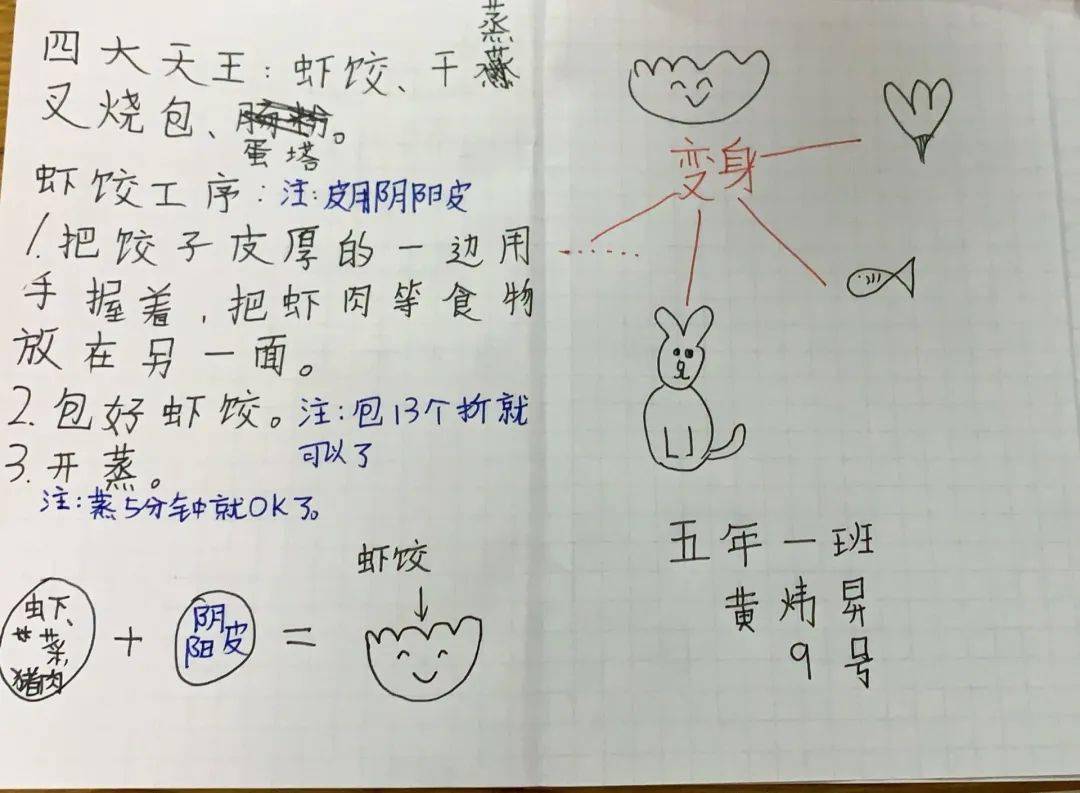 四大天王:虾饺、干蒸
叉烧包、蛋塔。
虾饺工序:注:皮用阴阳皮
1.把饺子皮厚的一边用
手握着,把虾肉等食物
放在另一面。
2.包好虾饺。注:包13个折就
可以了
3.开蒸。
注:蒸5分钟就OK了。
虾、
菜,
猪肉
+
阴
阳皮
=
虾饺
变身
......
五年一班
黄炜昇
9号